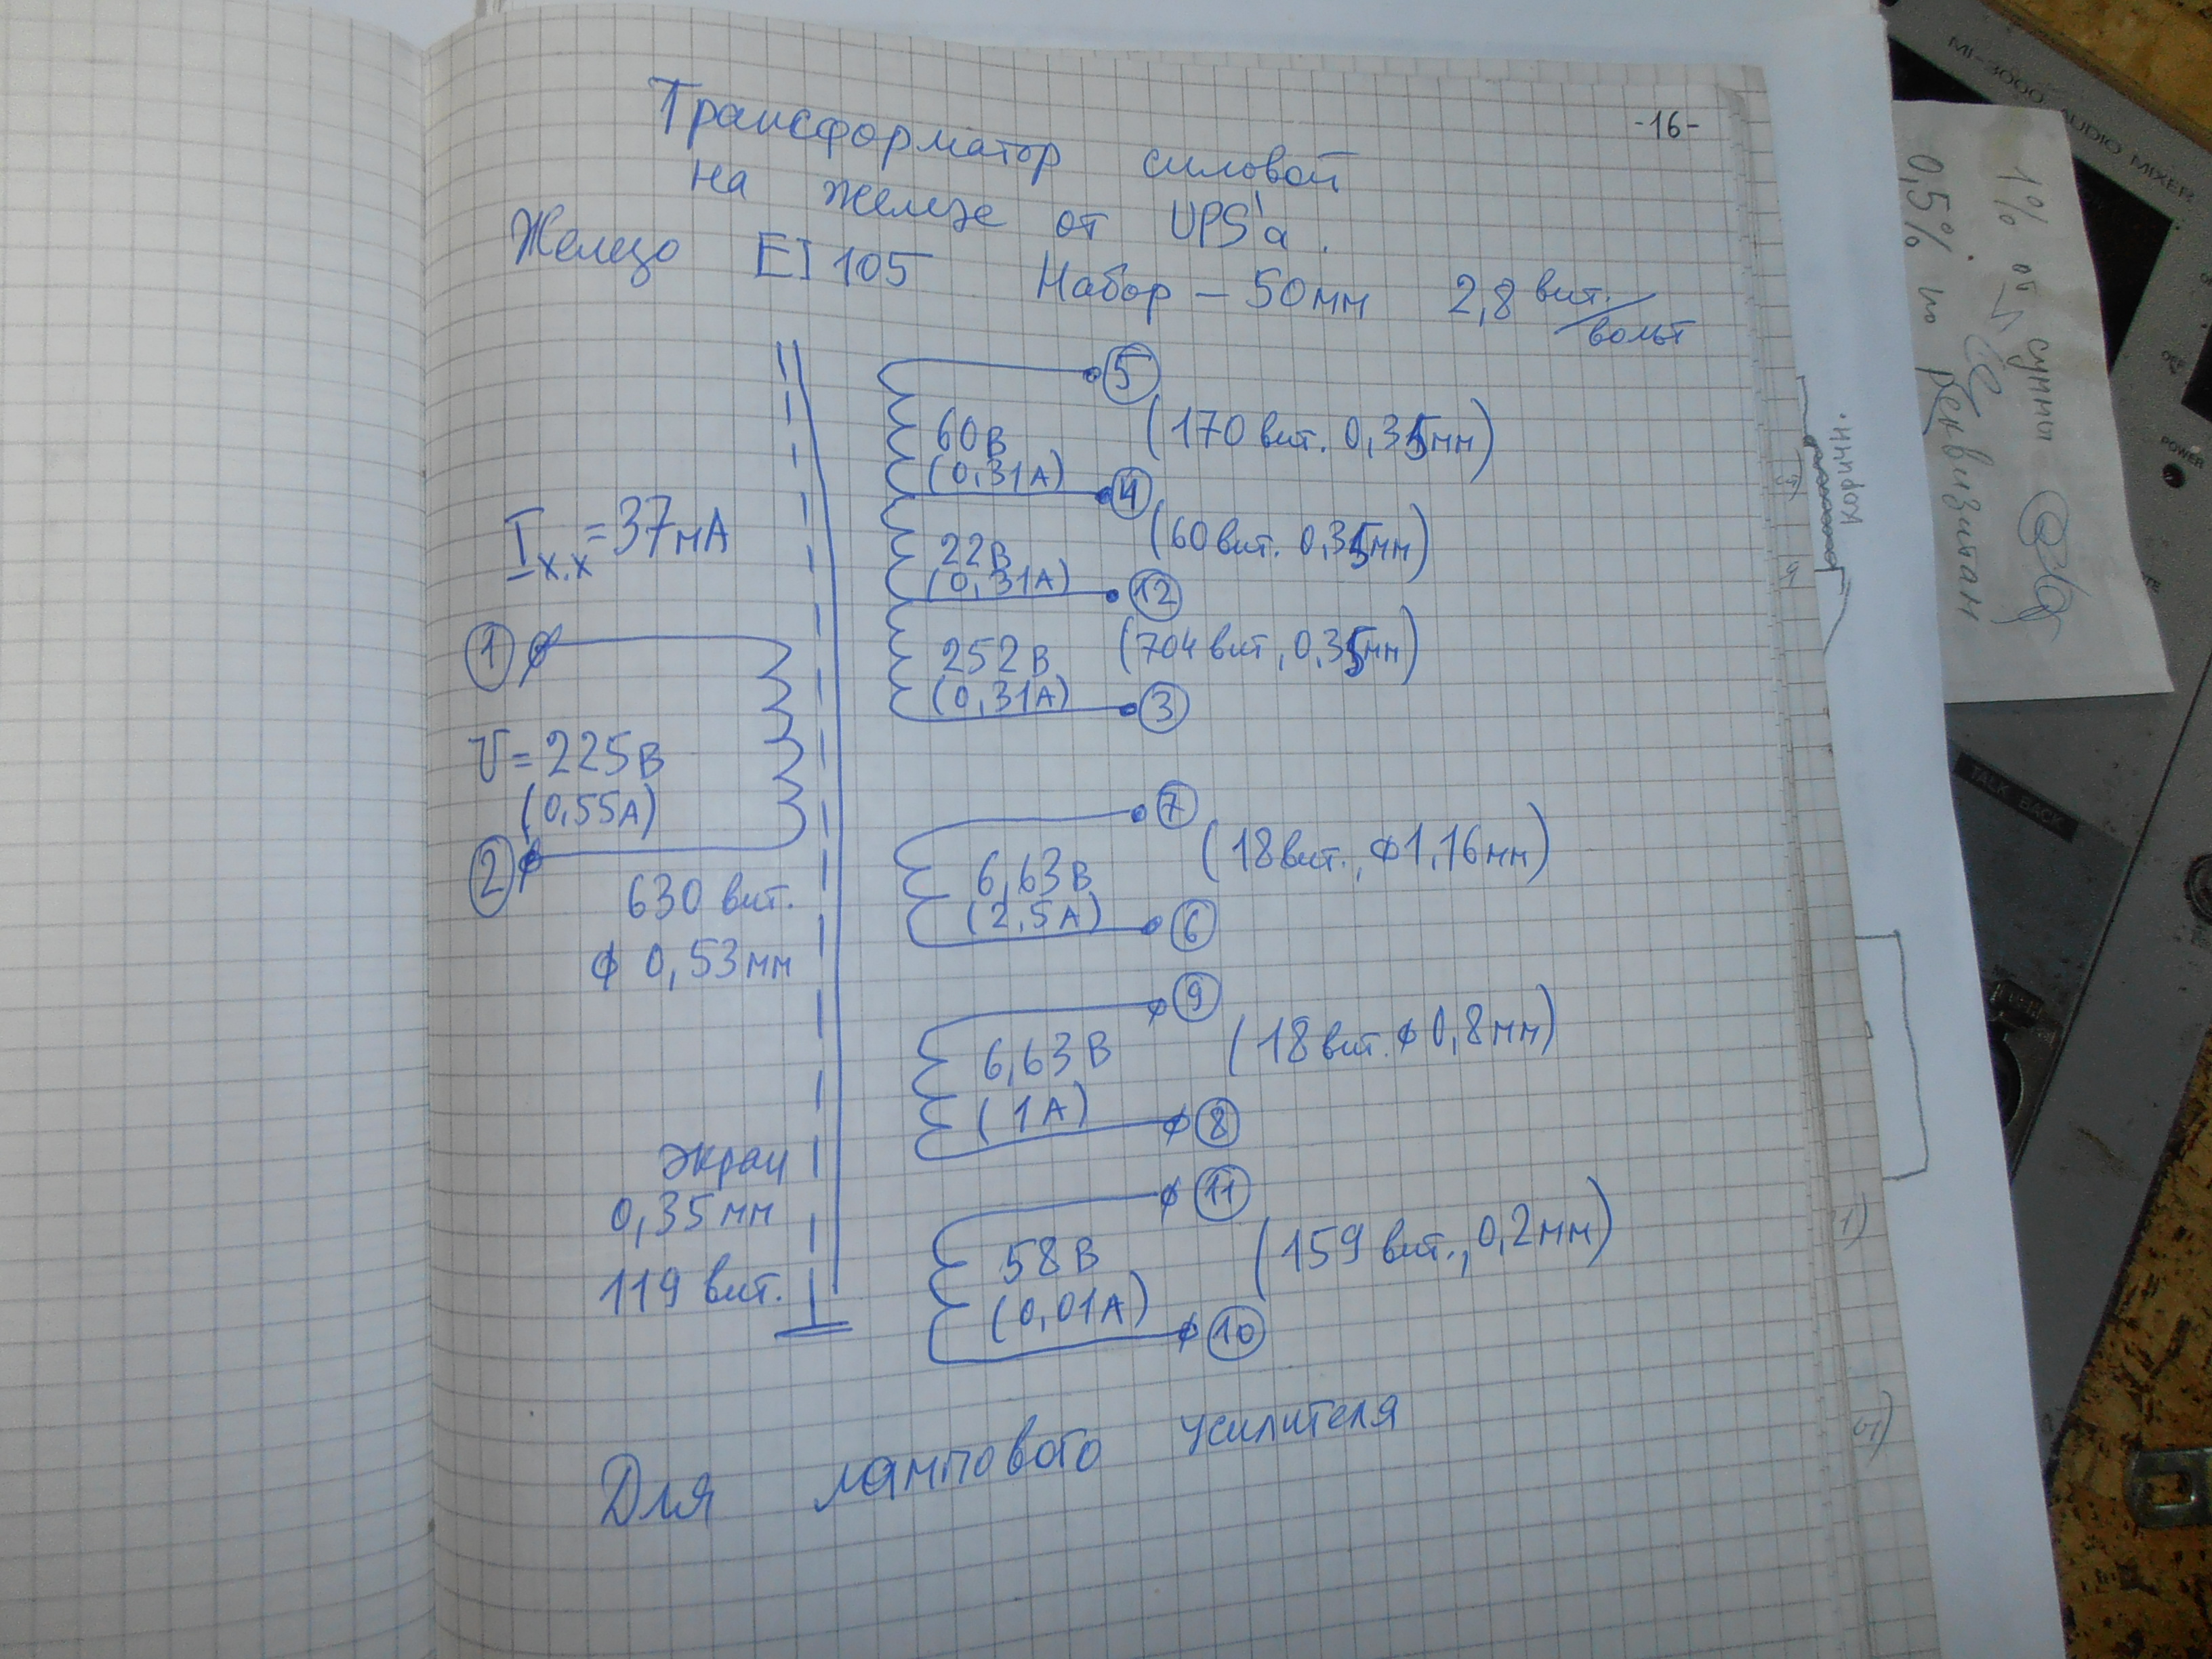 -16-
Трансформатор силовой
на железе от UPS'а.
Железо EI 105 Набор - 50мм 2,8 вит./вольт
5
60В (170 вит. 0,35мм)
(0,31А)
4
Iх.х = 37мА
22В (60 вит. 0,35мм)
(0,31А)
12
1
252В (704 вит, 0,35мм)
(0,31А)
3
U = 225В
(0,55А)
2
630 вит.
ϕ 0,53мм
7
6,63В (18вит., ϕ1,16мм)
(2,5А)
6
9
6,63В (18 вит. ϕ0,8мм)
(1А)
8
экран
0,35мм
119 вит.
11
58В (159 вит., 0,2мм)
(0,01А)
10
Для лампового усилителя
MI-3000 AUDIO MIXER
POWER
TALK BACK
1% от суммы
0,5% по
Кирпичн.